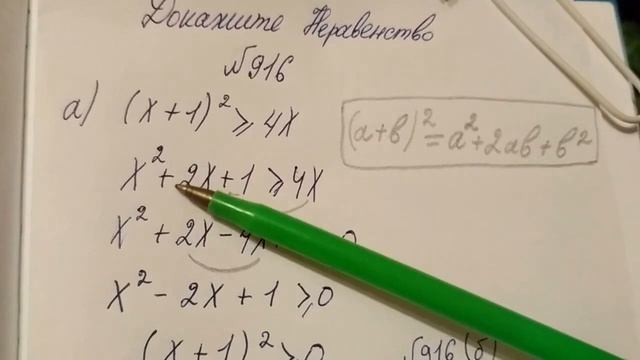 Докажите Неравенство
№916
а) (x+1)² ≥ 4x
(a+b)² = a² + 2ab + b²
x² + 2x + 1 ≥ 4x
x² + 2x - 4x 0
x² - 2x + 1 ≥ 0
(x+1)² ≥ 0
№916 (б)